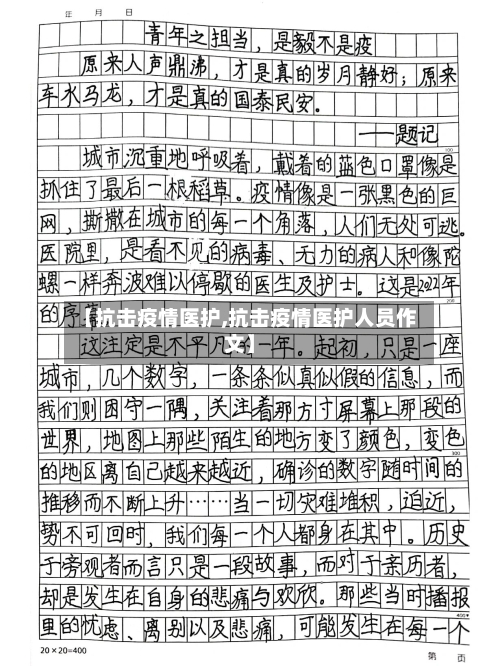 年 月 日
青年之担当，是毅不是疫
原来人声鼎沸，才是真的岁月静好；原来
车水马龙，才是真的国泰民安。
——题记
100
城市沉重地呼吸着，戴着的蓝色口罩像是
抓住了最后一根稻草。疫情像是一张黑色的巨
网，撕撒在城市的每一个角落，人们无处可逃。
医院里，是看不见的病毒、无力的病人和像陀
螺一样奔波难以停歇的医生及护士。这是2021年
200
的序幕
【抗击疫情医护,抗击疫情医护人员作
文】
这注定是不平凡的一年。起初，只是一座
城市，几个数字，一条条似真似假的信息，而
我们则困守一隅，关注着那方寸屏幕上那段的
世界，地图上那些陌生的地方变了颜色，变色
300
的地区离自己越来越近，确诊的数字随时间的
推移而不断上升……当一切灾难堆积，迫近，
势不可回时，我们每一个人都身在其中。历史
于旁观者而言只是一段故事，而对于亲历者，
却是发生在自身的悲痛与欢欣。那些当时播报
400
里的忧虑、离别以及悲痛，可能发生在每一个
20×20=400
第 页